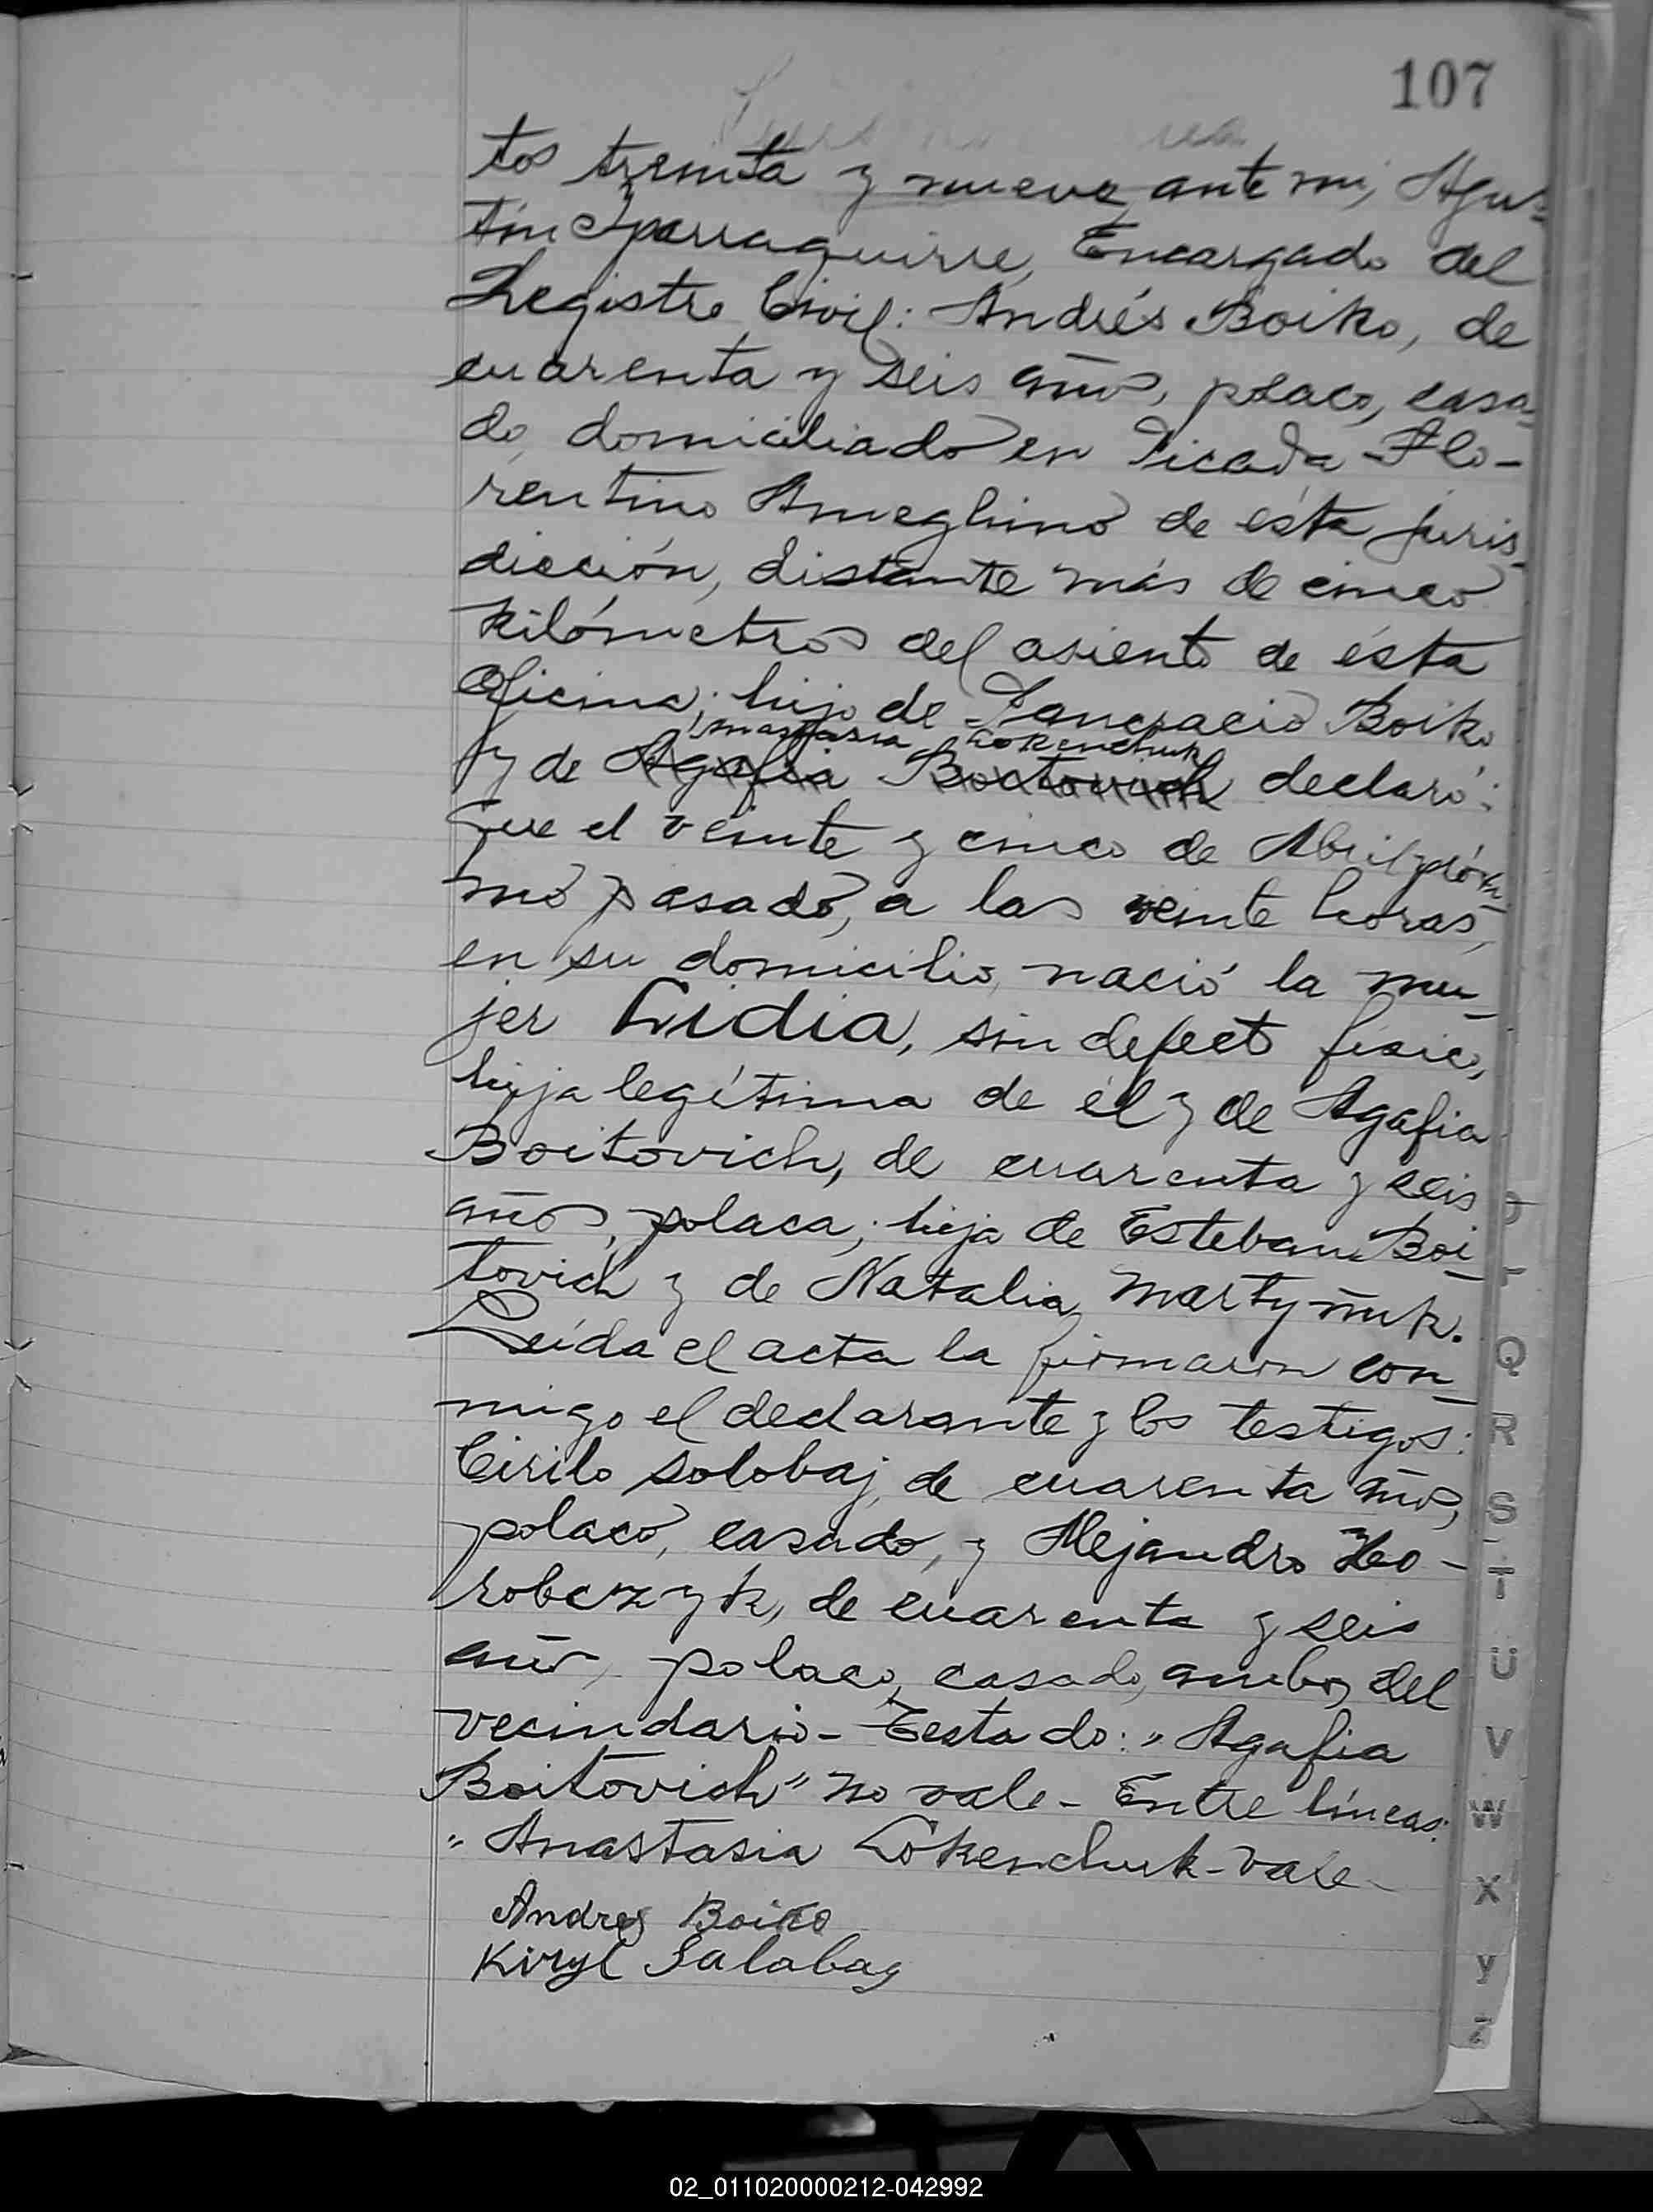 107
tos treinta y nueve, ante mi, Agus-
tín Iparraguirre, Encargado del
Registro Civil: Andrés Boiko, de
cuarenta y seis años, polaco, casa-
do, domiciliado en Picada Flo-
rentino Ameghino de ésta juris-
dicción, distante más de cinco
kilómetros del asiento de ésta
Oficina; hijo de Pancracio Boiko
Anastasia Lokenchuk
y de Agafia Boitovich declaró:
Que el veinte y cinco de Abril próxi-
mo pasado, a las veinte horas,
en su domicilio, nació la mu-
jer Lidia, sin defecto físico,
hija legítima de él y de Agafia
Boitovich, de cuarenta y seis
años, polaca; hija de Esteban Boi-
tovich y de Natalia Martyñuk.
Leída el acta la firmaron con-
migo el declarante y los testigos:
Cirilo Solobaj, de cuarenta años,
polaco, casado, y Alejandro Ho-
robczyk, de cuarenta y seis
años, polaco, casado, ambos del
vecindario- Testado: "Agafia
Boitovich" no vale- Entre líneas:
"Anastasia Lokenchuk- Vale-
Andres Boiko
Kiryl Salabay
Q
R
S
T
U
V
W
X
y
z
02_011020000212-042992